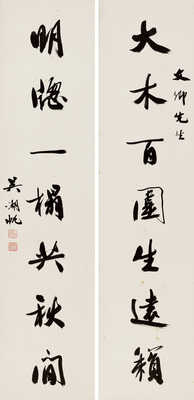 大木百圍生遠籟
文卿先生
明牕一榻共秋閒
吳湖帆